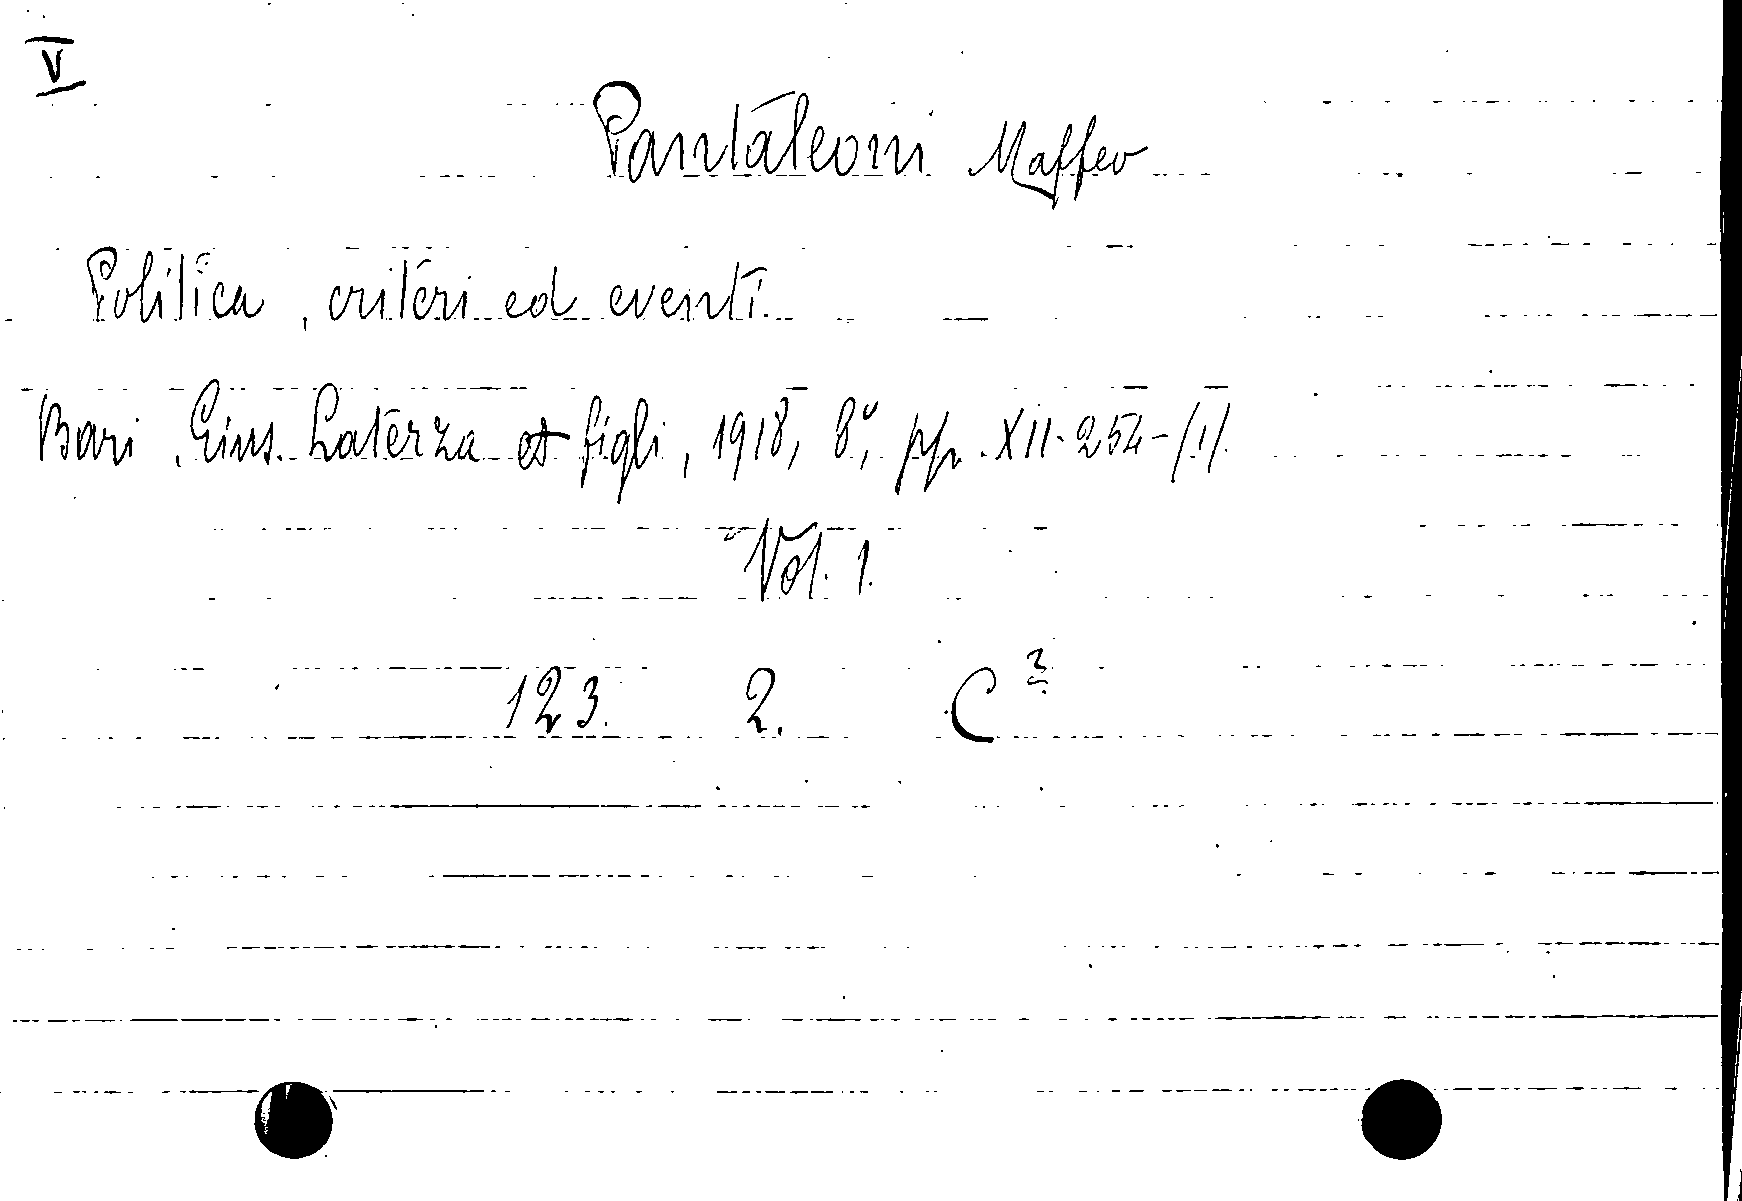 V
Pantaleoni Maffeo
Politica, criteri ed eventi.
Bari, Gius. Laterza et figli, 1918, 8°, pp. XII-254-/1/.
Vol. 1.
123. 2. C²